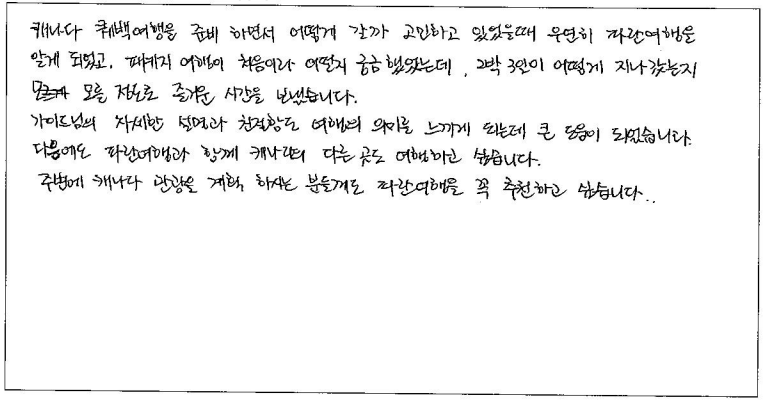 캐나다 퀘백여행을 준비 하면서 어떻게 갈까 고민하고 있었을때 우연히 파란여행을
알게 되었고, 패키지 여행이 처음이라 어떨지 궁금 했었는데, 2박 3일이 어떻게 지나갔는지
모를 정도로 즐거운 시간을 보냈습니다.
가이드님의 자세한 설명과 친절함도 여행의 의미를 느끼게 되는데 큰 도움이 되었습니다.
다음에도 파란여행과 함께 캐나다의 다른 곳도 여행하고 싶습니다.
주변에 캐나다 관광을 계획 하시는 분들께도 파란여행을 꼭 추천하고 싶습니다..